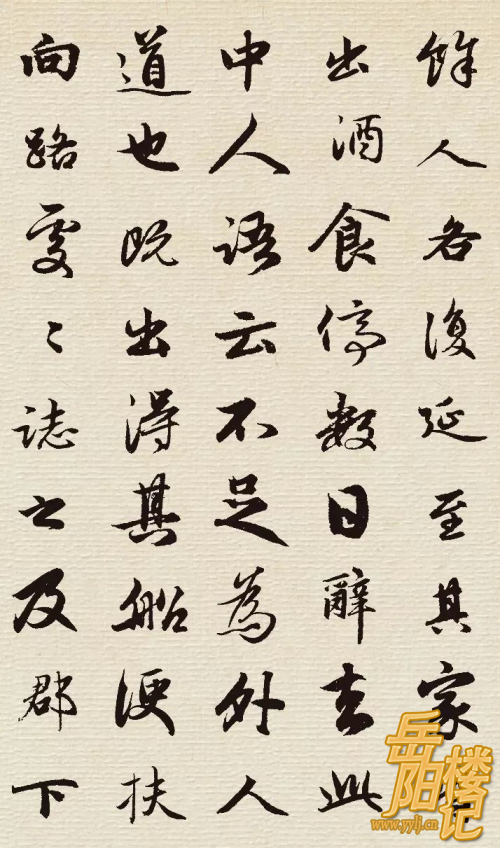 餘人各復延至其家
出酒食停數日辭去此
中人語云不足為外人
道也既出得其船便扶
向路處々誌之及郡下
岳阳楼记
www.yylj.cn